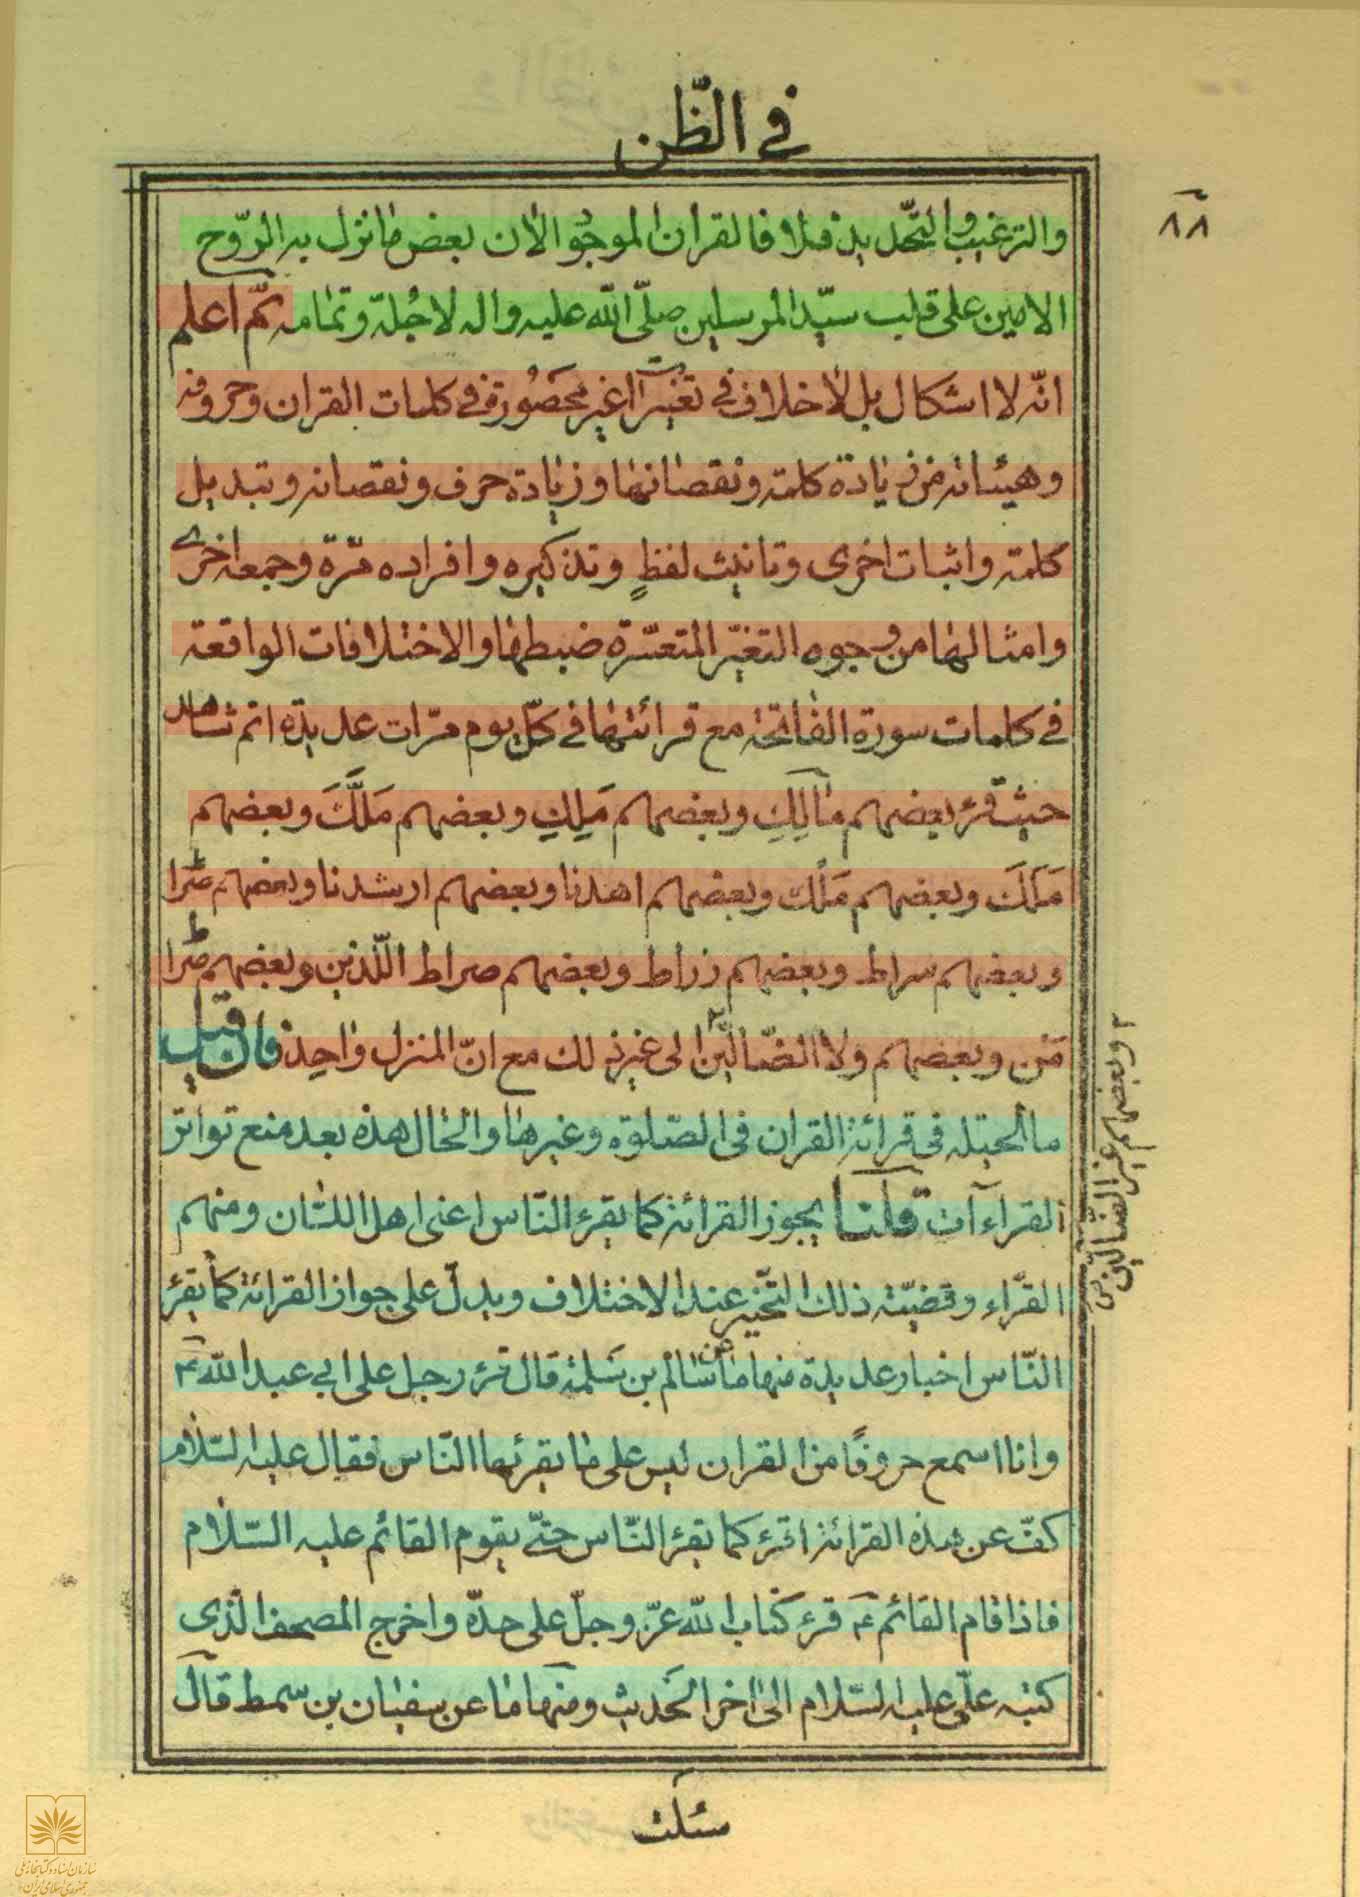 في الظّن
٨٨
والترغيب والتحديد فلا فالقران الموجود الان بعض ما نزل به الرّوح
الامين على قلب سيّد المرسلين صلّى اللّه عليه واله لا جُملة وتمامه ثمّ اعلم
انّه لا اشكال بل لا خلاف في تغيّرات غير محصُورة في كلمات القران وحروفه
وهيئاته من زيادة كلمته ونقصانها وزيادة حرف ونقصانه وتبديل
كلمته واثبات اخرى وتانيث لفظٍ وتذكيره وافراده مرّة وجمعه اخرى
وامثالها من وجوه التغيّر المتعسّرة ضبطها والاختلافات الواقعة
في كلمات سورة الفاتحة مع قرائتها في كلّ يوم مرّات عديدة اتم شاهد
حيث قرء بعضهم مالِكِ وبعضهم مَلِكِ وبعضهم مَلَّكَ وبعضهم
مَلَكَ وبعضهم مَلْك وبعضهم اهدنا وبعضهم ارشدنا وبعضهم صراط
وبعضهم سراط وبعضهم زراط وبعضهم صراط اللّذين وبعضهم صراط
مَن وبعضهم ولا الضّالّين الى غير ذلك مع انّ المنزل واحِد فان قيل
٢ وبعضهم غير الضّالّين
ما الحيلة في قرائة القران في الصّلوة وغيرها والحال هذه بعد منع تواتر
القراءآت قلنا يجوز القرائة كما يقرء النّاس اعنى اهل اللسان ومنهم
القرّاء وقضيّة ذلك التخيّر عند الاختلاف ويدلّ على جواز القرائة كما يقرء
النّاس اخبار عديدة منها ما عن سالم بن سَلمة قال قرء رجل على ابي عبد اللّه ع
وانا اسمع حروفًا من القران ليس على ما يقرئها النّاس فقال عليه السّلام
كفّ عن هذه القرائة اقرء كما يقرء النّاس حتّى يقوم القائم عليه السّلام
فاذا قام القائم ع قرء كتاب اللّه عزّ وجلّ على حدّه واخرج المصحف الّذى
كتبه علىّ عليه السّلام الى اخر الحَديث ومنها ما عن سفيان بن سمط قال
سئلت
سازمان اسناد و کتابخانه ملی
جمهوری اسلامی ایران